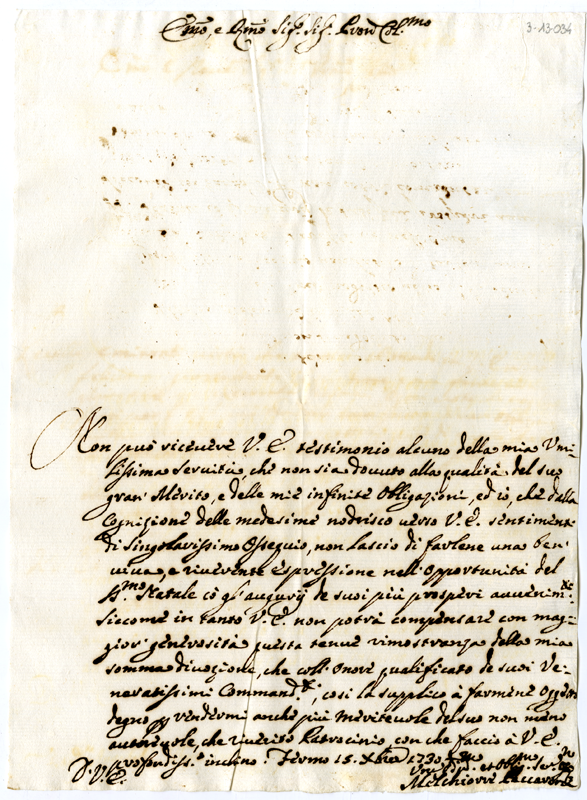 3-13-034
Emo, e Rmo Sig.r Sig.r Pron Col.mo
Non può ricevere V. E. testimonio alcuno della mia Umi-
lissima servitù, che non sia dovuto alla qualità del suo
gran Merito, e delle mie infinite Obligazioni, ed io, che dalla
Cognizione delle medesime nodrisco verso V. E. sentimenti
di singolarissimo Ossequio, non lascio di farlene una ben
viva, e riverente espressione nell'Opportunità del
S.mo Natale cō gl'augurij de suoi più prosperi avvenim.ti
Siccome in tanto V. E. non potrà compensare con mag-
gior generosità questa tenue rimostranza della mia
somma divozione, che coll'onore qualificato de suoi Ve-
neratissimi Command.ti, così la supplico à farmene Oggetto
degno, e rendermi anche più meritevole del suo non meno
autorevole, che riverito Patrocinio, con che faccio à V. E.
profondiss.o inchino. Fermo 15. Xbre 1730
D. V. E.
Um.mo et Obl.mo Ser.re
Melchiorre